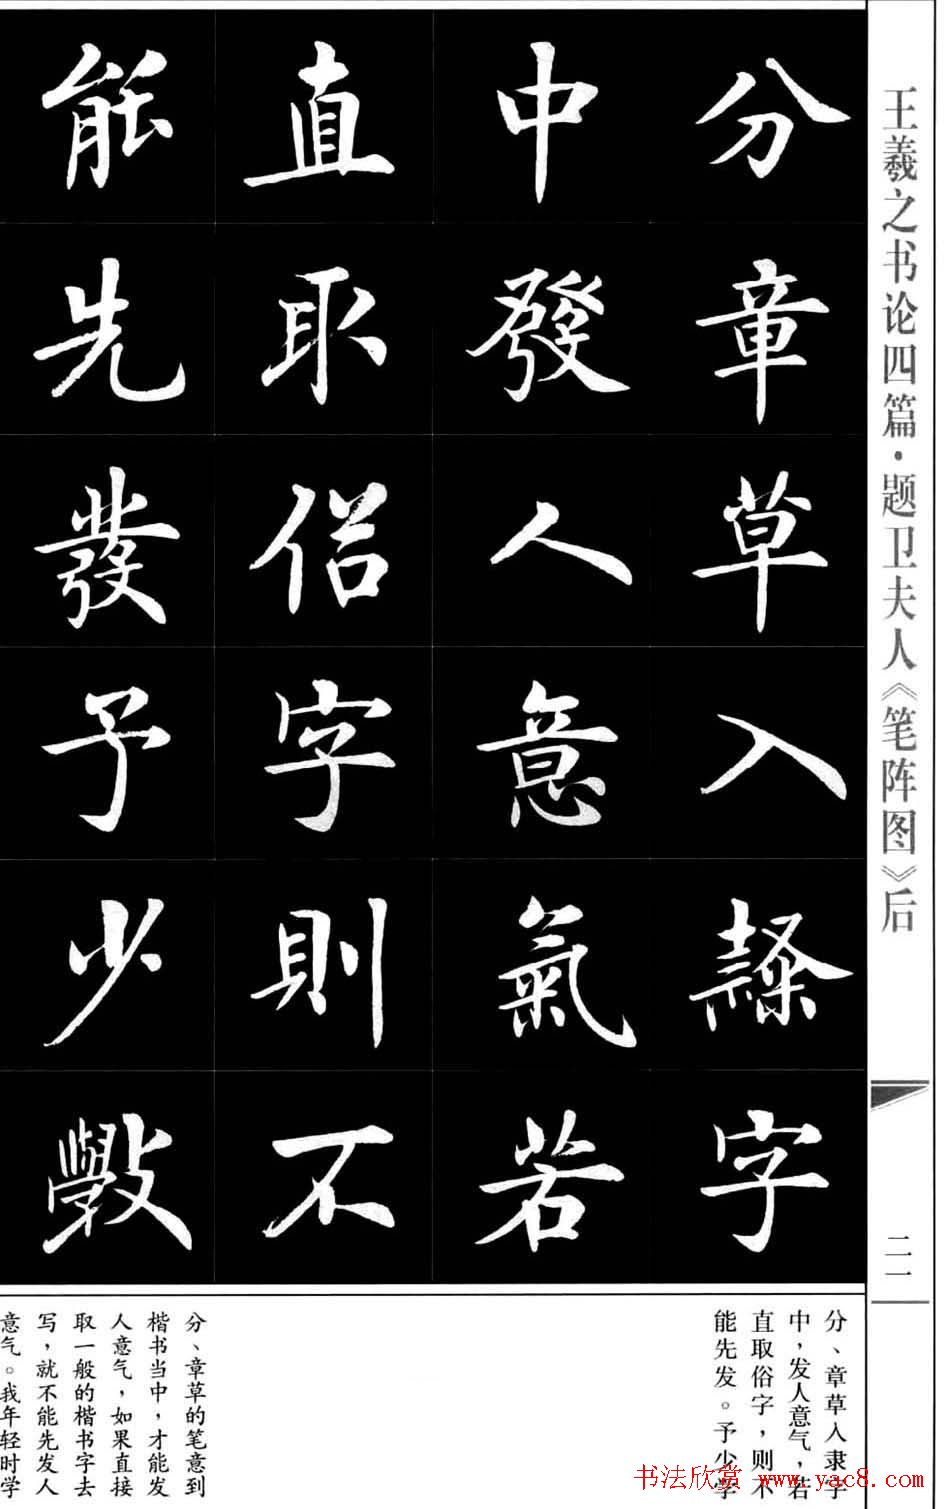 王羲之书论四篇·题卫夫人《笔阵图》后
二一
分章草入隸字
中發人意氣若
直取俗字則不
能先發予少學
分、章草入隶字
中，发人意气，若
直取俗字，则不
能先发。予少学
分、章草的笔意到
楷书当中，才能发
人意气，如果直接
取一般的楷书字去
写，就不能先发人
意气。我年轻时学
书法欣赏 www.yac8.com